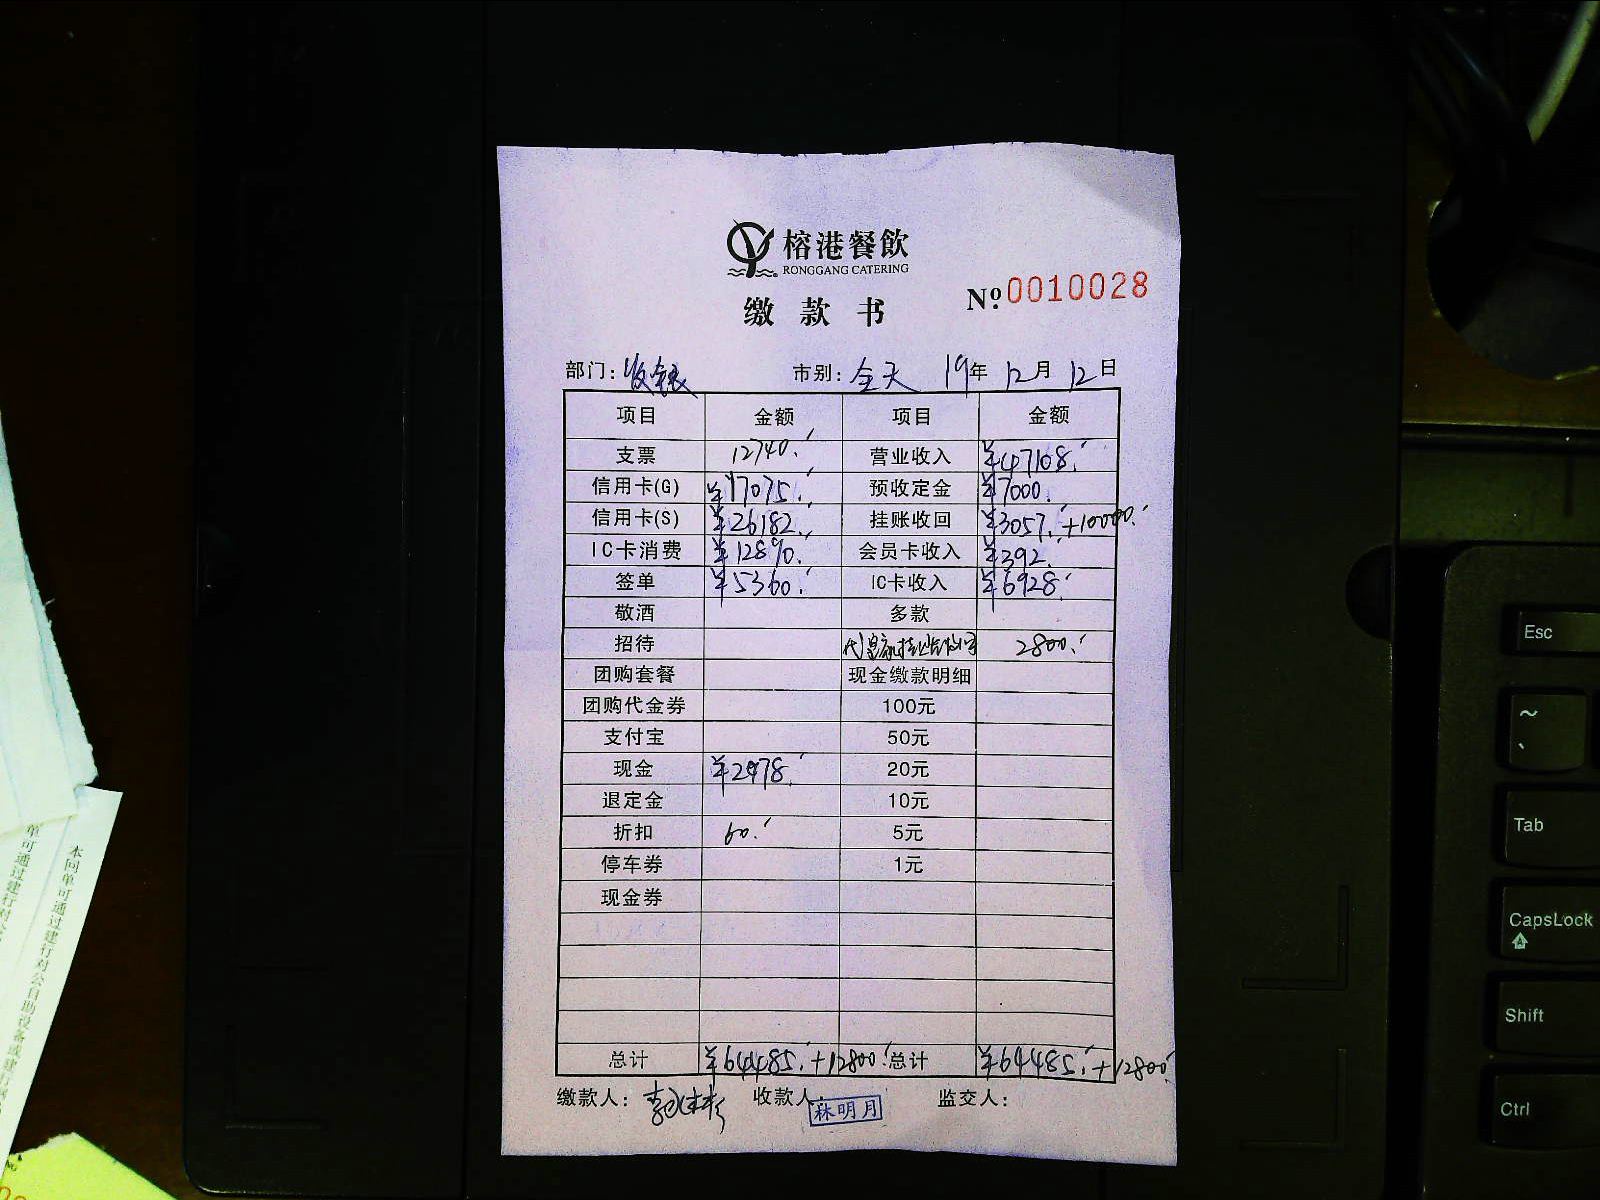 榕港餐飲
RONGGANG CATERING
缴款书 Nº 0010028
部门：收银 市别：全天 19年12月12日
项目 金额 项目 金额
支票 12740. 营业收入 ¥47108.
信用卡(G) ¥17075. 预收定金 ¥7000.
信用卡(S) ¥26182. 挂账收回 ¥3057.+10000.
IC卡消费 ¥12890. 会员卡收入 ¥392.
签单 ¥5360. IC卡收入 ¥6928.
敬酒 多款
招待 2800.
团购套餐 现金缴款明细
团购代金券 100元
支付宝 50元
现金 ¥2978. 20元
退定金 10元
折扣 60. 5元
停车券 1元
现金券
总计 ¥64485.+12800. 总计 ¥64485.+12800.
缴款人： 收款人： 林明月 监交人：
Esc
~
Tab
CapsLock
Shift
Ctrl
本回单可通过建行对公自助设备或建行
单可通过建行对